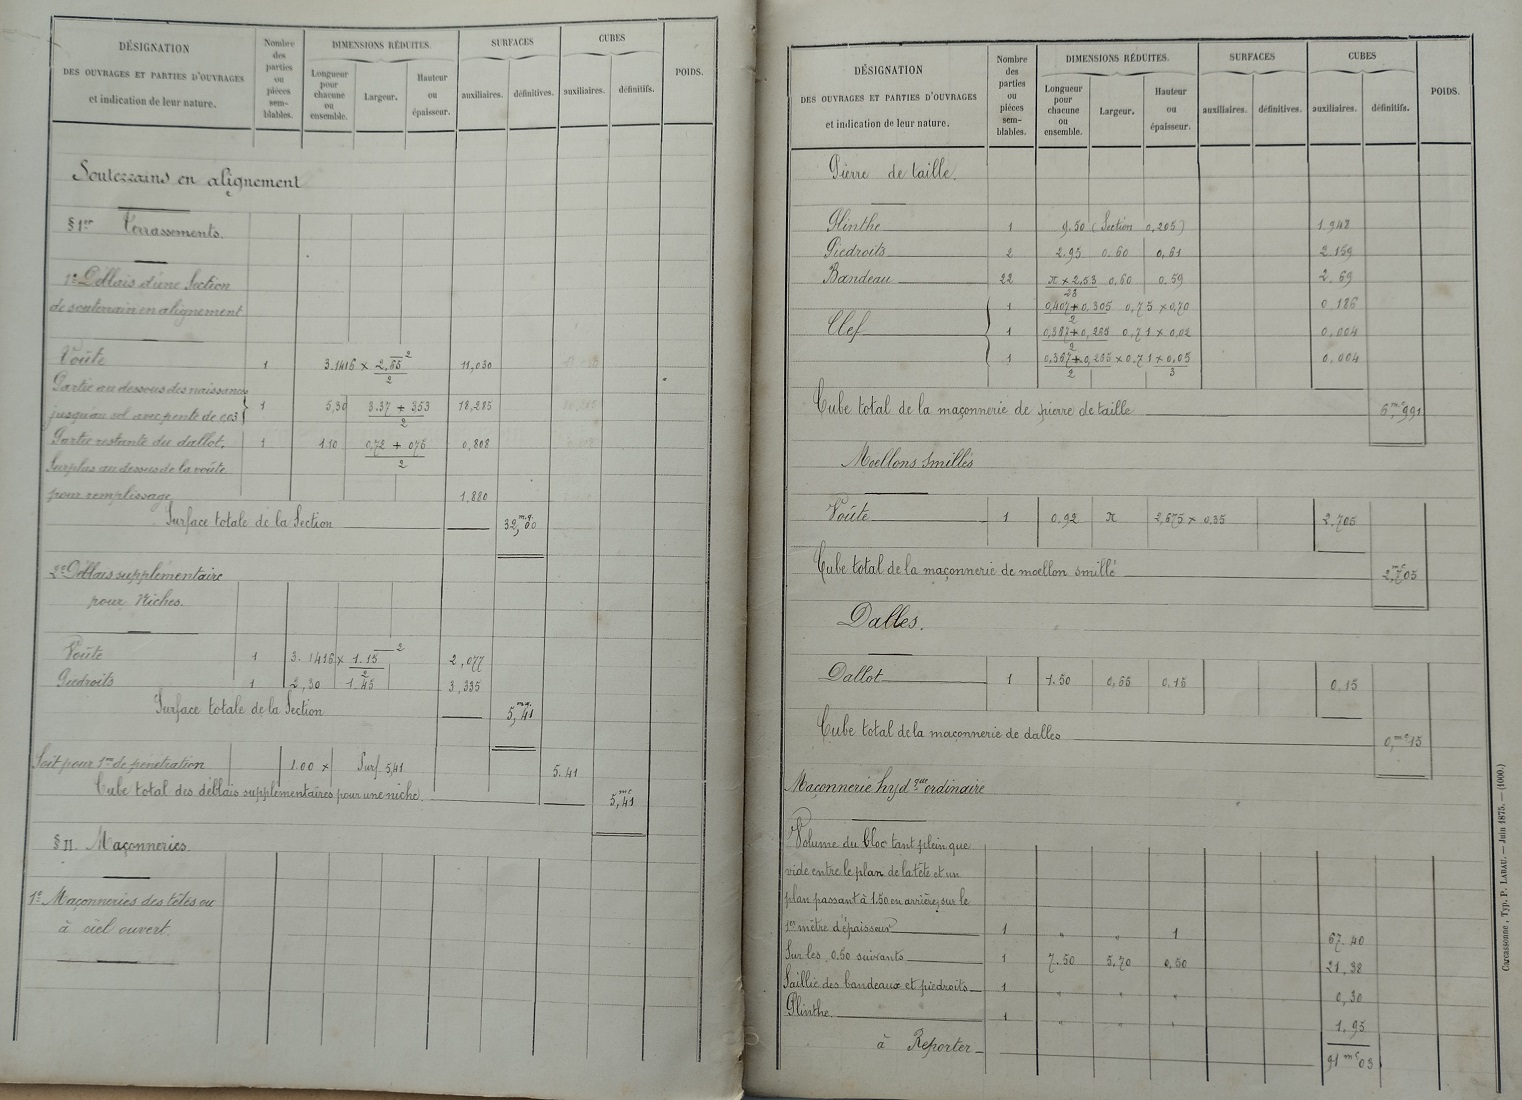 DÉSIGNATION
DES OUVRAGES ET PARTIES D'OUVRAGES
et indication de leur nature.
Nombre des parties ou pièces sem- blables.
DIMENSIONS RÉDUITES.
Longueur pour chacune ou ensemble.
Largeur.
Hauteur ou épaisseur.
SURFACES
auxiliaires. définitives.
CUBES
auxiliaires. définitifs.
POIDS.
Souterrains en alignement
§ 1er Terrassements.
1° Déblais d'une Section
de souterrain en alignement
Voûte 1 3.1416 x 2,65² / 2 11,030
Partie au dessous des naissances
jusqu'au sol avec pente de 0,03 } 1 5,30 3.37 + 3.53 / 2 18,285
Partie restante du dallot. 1 1.10 0,72 + 0,76 / 2 0,808
Surplus au dessus de la voûte
pour remplissage 1.880
Surface totale de la Section 32,m.q.00
2° Déblais supplémentaire
pour Niches.
Voûte 1 3.1416 x 1.15² / 2 2,077
Piedroits 1 2,30 1.45 3,335
Surface totale de la Section 5,m.q.41
Soit pour 1m de pénétration 1.00 x Surf. 5,41 5.41
Cube total des déblais supplémentaires pour une niche 5,mc41
§ II. Maçonneries.
1° Maçonneries des têtes ou
à ciel ouvert.
DÉSIGNATION
DES OUVRAGES ET PARTIES D'OUVRAGES
et indication de leur nature.
Nombre des parties ou pièces sem- blables.
DIMENSIONS RÉDUITES.
Longueur pour chacune ou ensemble.
Largeur.
Hauteur ou épaisseur.
SURFACES
auxiliaires. définitives.
CUBES
auxiliaires. définitifs.
POIDS.
Pierre de taille.
Plinthe 1 9.50 (Section 0,205) 1.948
Piedroits 2 2.95 0.60 0,61 2.159
Bandeau 22 π x 2,53 / 23 0,60 0.59 2.69
{ 1 0,407+0,305 / 2 0,75 x 0,70 0,186
Clef { 1 0,387+0,265 / 2 0,71 x 0,02 0,004
{ 1 0,367+0,265 / 2 x 0,71 x 0,05 / 3 0,004
Cube total de la maçonnerie de pierre de taille 6,mc991
Moellons Smillés
Voûte 1 0,92 π 2,675 x 0,35 2.705
Cube total de la maçonnerie de moellon smillé 2,mc705
Dalles.
Dallot 1 1.50 0,66 0.15 0,15
Cube total de la maçonnerie de dalles 0,mc15
Maçonnerie hydque ordinaire
Volume du bloc tant plein que
vide entre le plan de la tête et un
plan passant à 1.50 en arrière, sur le
1er mètre d'épaisseur 1 " " 1 67.40
Sur les 0.50 suivants 1 7.50 5,70 0,50 21,38
Saillie des bandeaux et piedroits 1 " " " 0,30
Plinthe. 1 " " " 1,95
à Reporter 91mc03
Carcassonne, Typ. P. LABAU. — Juin 1875. — (1000.)